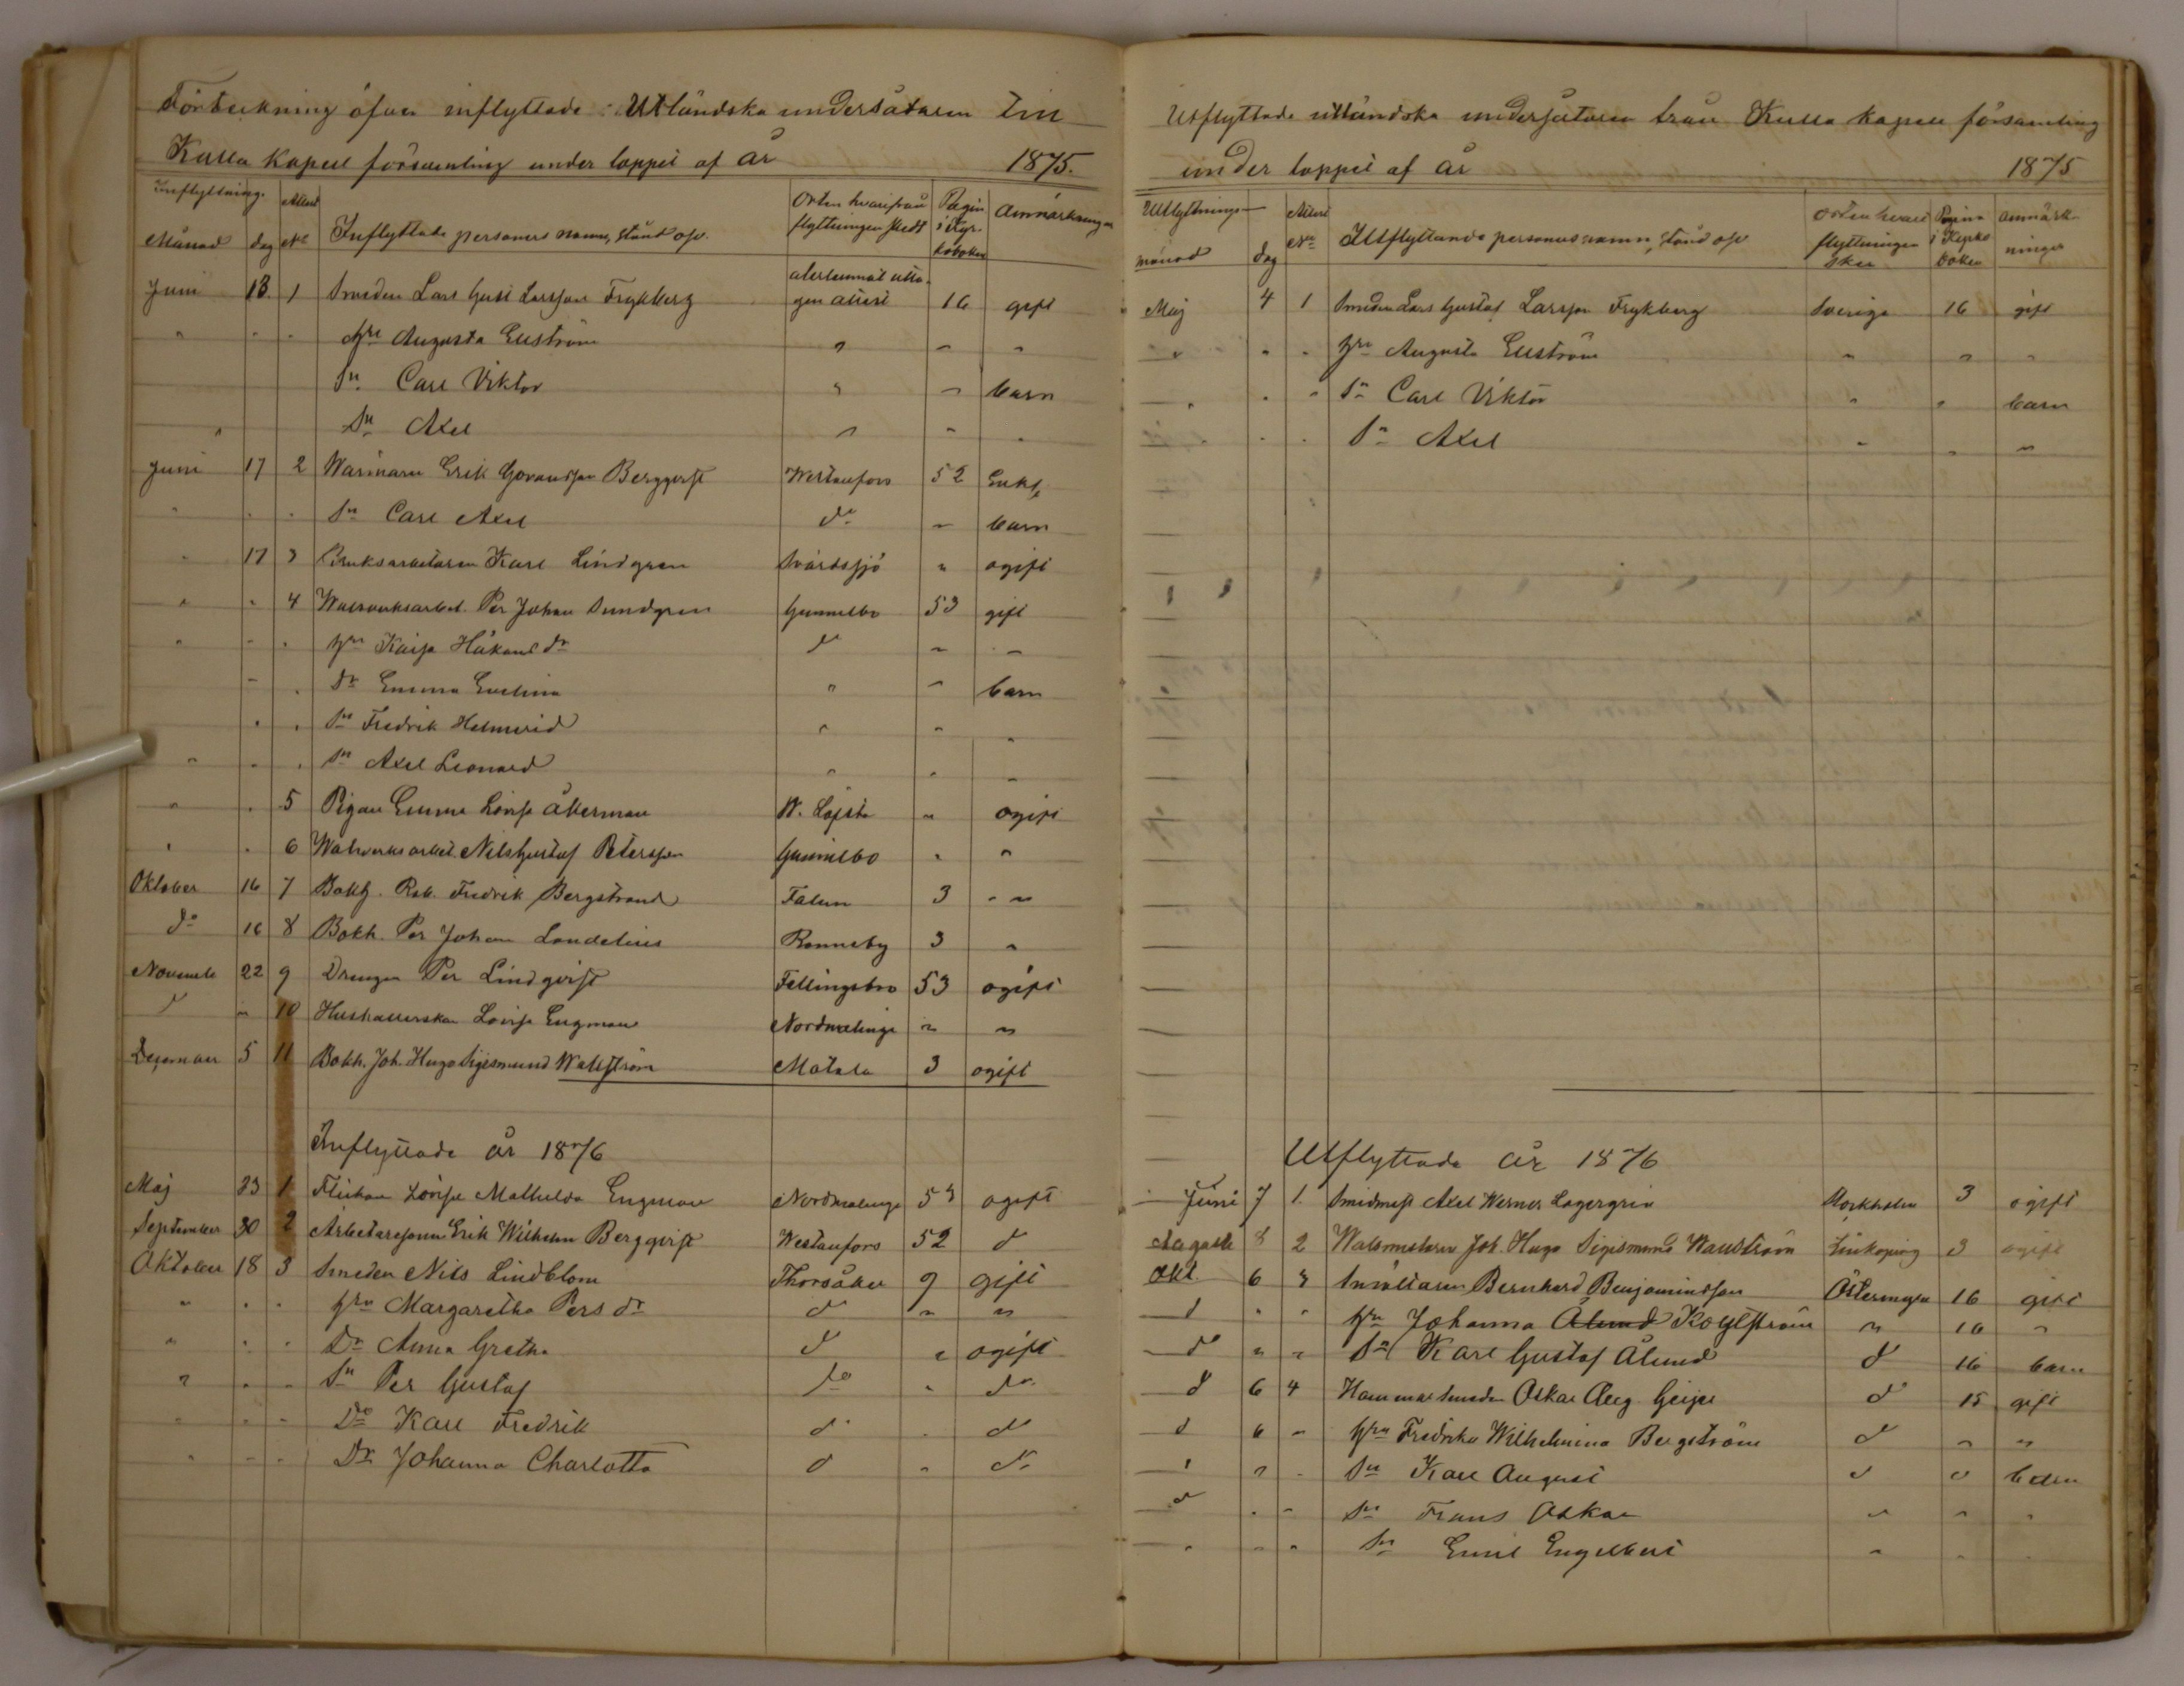 Förtekning öfver inflyttade Utländska undersåtaren Till
Kulla Kapell församling under loppet af år 1875.
Inflyttning.
Månad dag No Inflyttade personers namn, stånd osv. Orten hvarifrån flyttningen skedt Pagin i Kyrkoboken Anmärkningar
Juni 13. 1 Smeden Lars Gust Larsson Frykberg 16 gift
" " " Hru Augusta Enström " " "
Sn Carl Viktor " " barn
" Sn Axel " " "
Juni 17 2 Erik Göransson Bergqvist Westanfors 52 Enkl.
" " " Sn Carl Axel do " barn
" 17 3 Bruksarbetaren Karl Lindgren Svärdsjö " ogift
" " 4 Per Johan Sundgren Gunnilbo 53 gift
" " " Hru Kaisa Håkansdr d " "
" " Dr Emma Evelina " " barn
" " Sn Fredrik Helmerid " " "
" " " Sn Axel Leonard " " "
" " 5 Pigan Emma Lovisa Åkerman W. Löfsta " ogift
" " 6 Walsverksarbet. Nils Gustaf Petersson Gunnilbo " "
Oktober 16 7 Bokh. Rob. Fredrik Bergstrand Falun 3 " "
do 16 8 Bokh. Per Johan Landelius Ronneby 3 "
Novemb 22 9 Drengen Per Lindqvist Fellingsbro 53 ogift
d " 10 Hushållerskan Lovisa Engman Nordmalings " "
December 5 11 Bokh. Joh. Hugo Sigismund Wallström Motala 3 ogift
Inflyttade år 1876
Maj 23 1 Flickan Lovisa Mathilda Engman Nordmalings 53 ogift
September 30 2 Arbetaresonen Erik Wilhelm Bergqvist Westanfors 52 d
Oktober 18 3 Smeden Nils Lindblom Thorsåker 9 gift
" " " Hru Margaretha Persdr d " "
" " " Dr Anna Gretha d " ogift
" " " Sn Per Gustaf do " do
" " " Do Karl Fredrik d " d
" " " Dr Johanna Charlotta d " d
Utflyttade utländska undersåtaren från Kulla kapell församling
under loppet af år 1875
Utflyttnings-
månad dag No Utflyttande personers namn, stånd osv orten hvart flyttningen sker Pagina i Kyrko boken anmärkningar
Maj 4 1 Smeden Lars Gustaf Larsson Frykberg Sverige 16 gift
" " " Hru Augusta Enström " " "
" " " Sn Carl Viktor " " barn
" " " Sn Axel " " "
Utflyttade år 1876
Juni 7 1. Smidmäst Axel Werner Lagergren Stockholm 3 ogift
Augusti 8 2 Walsmästaren Joh. Hugo Sigismund Wallström Linköping 3 ogift
Okt. 6 3 Bernhard Benjaminsson Östermyra 16 gift
d " " Hru Johanna Ålund Kohlström " 16 "
d " " Sn Karl Gustaf Ålund d 16 barn
d 6 4 Hammarsmeden Oskar Aug. Geijer d 15 gift
d 6 " Hru Fredrika Wilhelmina Bergström d " "
" " " Sn Karl August d d barn
d " " Sn Frans Oskar " " "
" " " Sn Emil Engelbert " " "